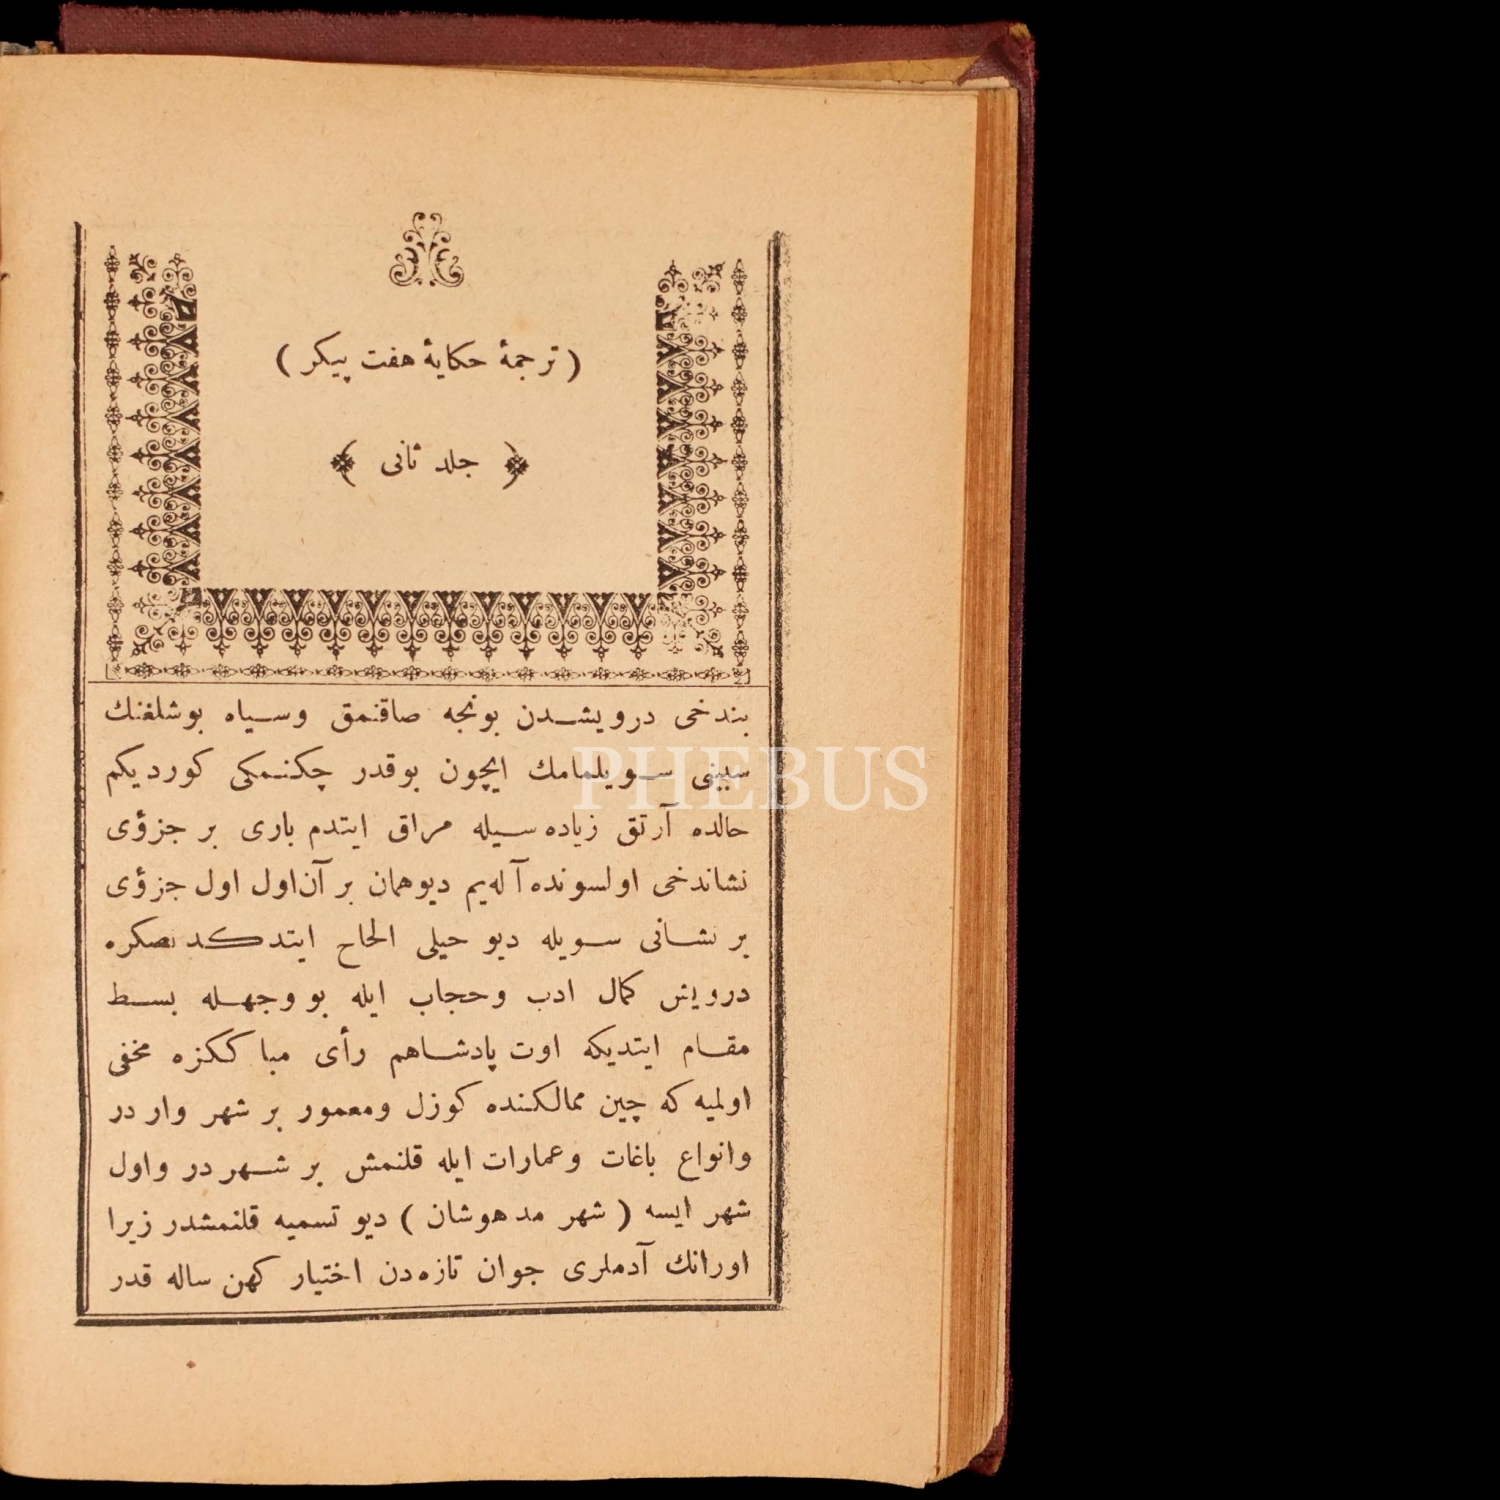 ( ترجمهٔ حكايهٔ هفت پيكر )
﴿ جلد ثانى ﴾
بندخى درويشدن بونجه صاقنمق وسياه بوشلغنك
سببنى سويلمامك ايچون بوقدر چكنمكى كورديكم
حالده آرتق زياده سيله مراق ايتدم بارى بر جزؤى
نشاندخى اولسونده آله يم ديوهمان بر آن اول اول جزؤى
بر نشانى سويله ديو حيلى الحاح ايتدكدنصكره
درويش كمال ادب وحجاب ايله بو وجهله بسط
مقام ايتديكه اوت پادشاهم رأى مباككزه مخفى
اولميه كه چين ممالكنده كوزل ومعمور بر شهر وار در
وانواع باغات وعمارات ايله قلنمش بر شهر در واول
شهر ايسه ( شهر مدهوشان ) ديو تسميه قلنمشدر زيرا
اورانك آدملرى جوان تازه دن اختيار كهن ساله قدر
PHEBUS